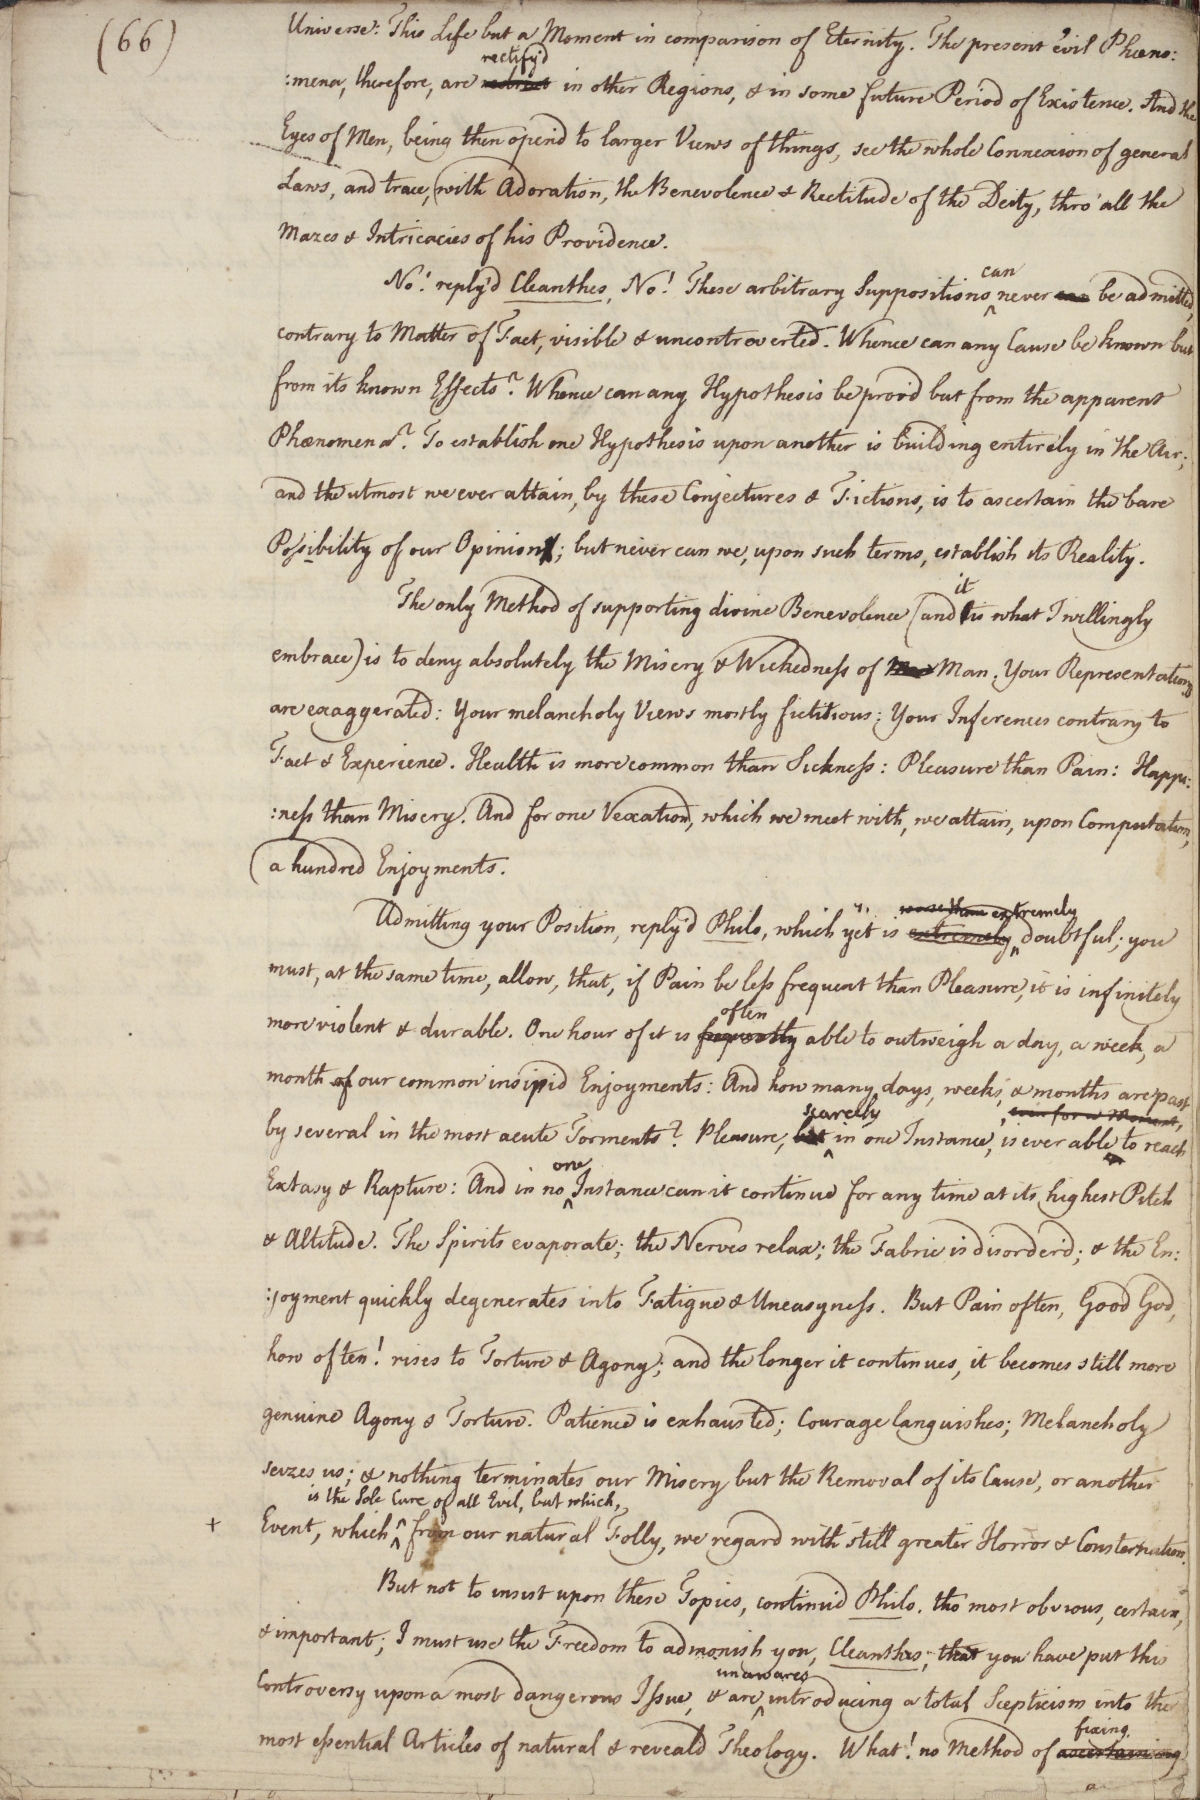 (66)
Universe: This Life but a Moment in comparison of Eternity. The present evil Phæno:
rectify'd
:mena, therefore, are in other Regions, & in some future Period of Existence. And the
Eyes of Men, being then open'd to larger Views of things, see the whole Connexion of general
Laws, and trace, with Adoration, the Benevolence & Rectitude of the Deity, thro' all the
Mazes & Intricacies of his Providence.
can
No! reply'd Cleanthes, No! These arbitrary Suppositions never can be admitted,
contrary to Matter of Fact, visible & uncontroverted. Whence can any Cause be known but
from its known Effects? Whence can any Hypothesis be prov'd but from the apparent
Phænomena? To establish one Hypothesis upon another is building entirely in the Air;
and the utmost we ever attain, by these Conjectures & Fictions, is to ascertain the bare
Possibility of our Opinion; but never can we, upon such terms, establish its Reality.
it
The only Method of supporting divine Benevolence (and is what I willingly
embrace) is to deny absolutely the Misery & Wickedness of Man. Your Representations
are exaggerated: Your melancholy Views mostly fictitious: Your Inferences contrary to
Fact & Experience. Health is more common than Sickness: Pleasure than Pain: Happi:
:ness than Misery. And for one Vexation, which we meet with, we attain, upon Computation,
a hundred Enjoyments.
more than extremely
Admitting your Position, reply'd Philo, which yet is extremely doubtful; you
must, at the same time, allow, that, if Pain be less frequent than Pleasure, it is infinitely
often
more violent & durable. One hour of it is frequently able to outweigh a day, a week, a
month of our common insipid Enjoyments: And how many days, weeks, & months are past
scarcely even for a Moment,
by several in the most acute Torments? Pleasure, but in one Instance, is ever able to reach
one
Extasy & Rapture: And in no Instance can it continue for any time at its highest Pitch
& Altitude. The Spirits evaporate; the Nerves relax; the Fabric is disorder'd; & the En:
:joyment quickly degenerates into Fatigue & Uneasyness. But Pain often, Good God,
how often! rises to Torture & Agony; and the longer it continues, it becomes still more
genuine Agony & Torture. Patience is exhausted; Courage languishes; Melancholy
seizes us; & nothing terminates our Misery but the Removal of its Cause, or another
is the sole Cure of all Evil, but which,
+ Event, which from our natural Folly, we regard with still greater Horror & Consternation.
But not to insist upon these Topics, continu'd Philo, tho most obvious, certain,
& important; I must use the Freedom to admonish you, Cleanthes, that you have put this
unawares
Controversy upon a most dangerous Issue, & are introducing a total Scepticism into the
most essential Articles of natural & reveal'd Theology. What! no Method of ascertaining
fixing